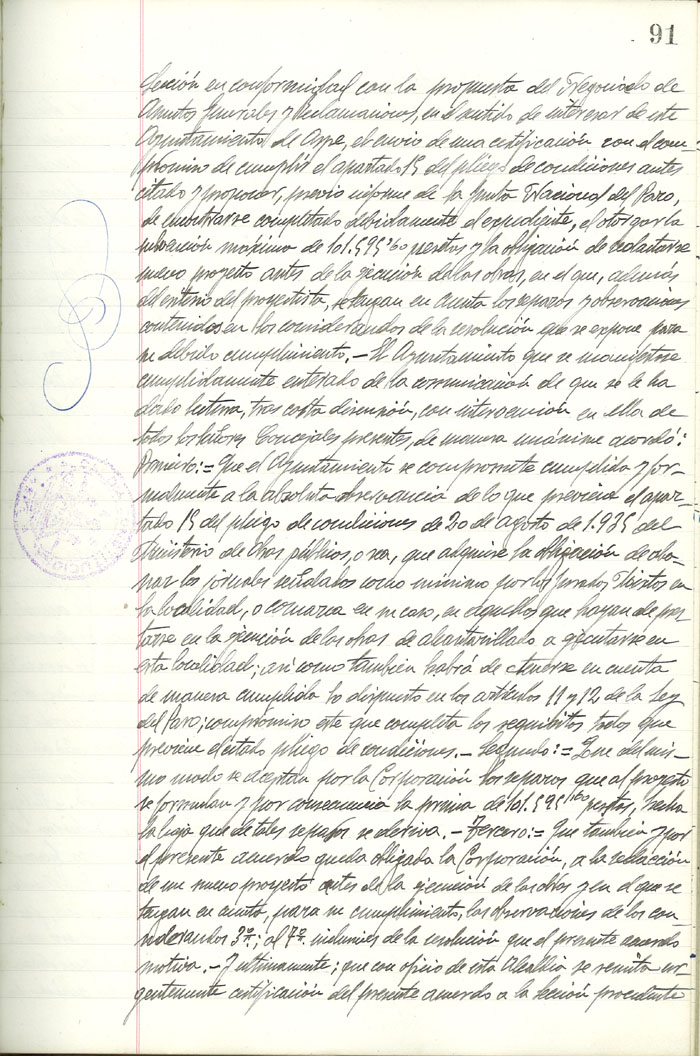 91
Sección en conformidad con la propuesta del Negociado de
Asuntos Generales y Reclamaciones, en el sentido de interesar de este
Ayuntamiento de Aspe, el envio de una certificación con el com-
promiso de cumplir el apartado 15 del pliego de condiciones antes
citado y proponer, previo informe de la Junta Nacional del Paro,
de encontrarse completado debidamente el expediente, el otorgar la
subvención máxima de 101.595'60 pesetas y la obligación de redactarse
nuevo proyecto antes de la ejecución de las obras, en el que, además
del criterio del proyectista, se tengan en cuenta los reparos y observaciones
contenidos en los considerandos de la resolución que se expone para
su debido cumplimiento.- El Ayuntamiento que se manifiesta
cumplidamente enterado de la comunicación de que se le ha
dado lectura, tras corta discusión, con intervención en ella de
todos los Señores Concejales presentes, de manera unánime acordó:
Primero:= Que el Ayuntamiento se compromete cumplida y for-
malmente a la absoluta observancia de lo que previene el apar-
tado 15 del pliego de condiciones de 20 de agosto de 1.935 del
Ministerio de Obras públicas, o sea, que adquiere la obligación de abo-
nar los jornales señalados como mínimo por los Jurados Mixtos en
la localidad, o comarca en su caso, en aquellos que hayan de pres-
tarse en la ejecución de las obras de alcantarillado a ejecutarse en
esta localidad; así como también habrá de tenerse en cuenta
de manera cumplida lo dispuesto en los artículos 11 y 12 de la Ley
del Paro; compromiso este que completa los requisitos todos que
previene el citado pliego de condiciones.- Segundo:= Que del mis-
mo modo se aceptan por la Corporación los reparos que al proyecto
se formulan y por consecuencia la prima de 101.595'60 pesetas, hecha
la baja que de tales reparos se deriva.- Tercero:= Que también y por
el presente acuerdo queda obligada la Corporación, a la redacción
de un nuevo proyecto antes de la ejecución de las obras y en el que se
tengan en cuenta, para su cumplimiento, las observaciones de los con-
siderandos 3º; al 7º inclusives de la resolución que el presente acuerdo
motiva.- Y ultimamente; que con oficio de esta Alcaldía se remita ur-
gentemente certificación del presente acuerdo a la Sección procedente